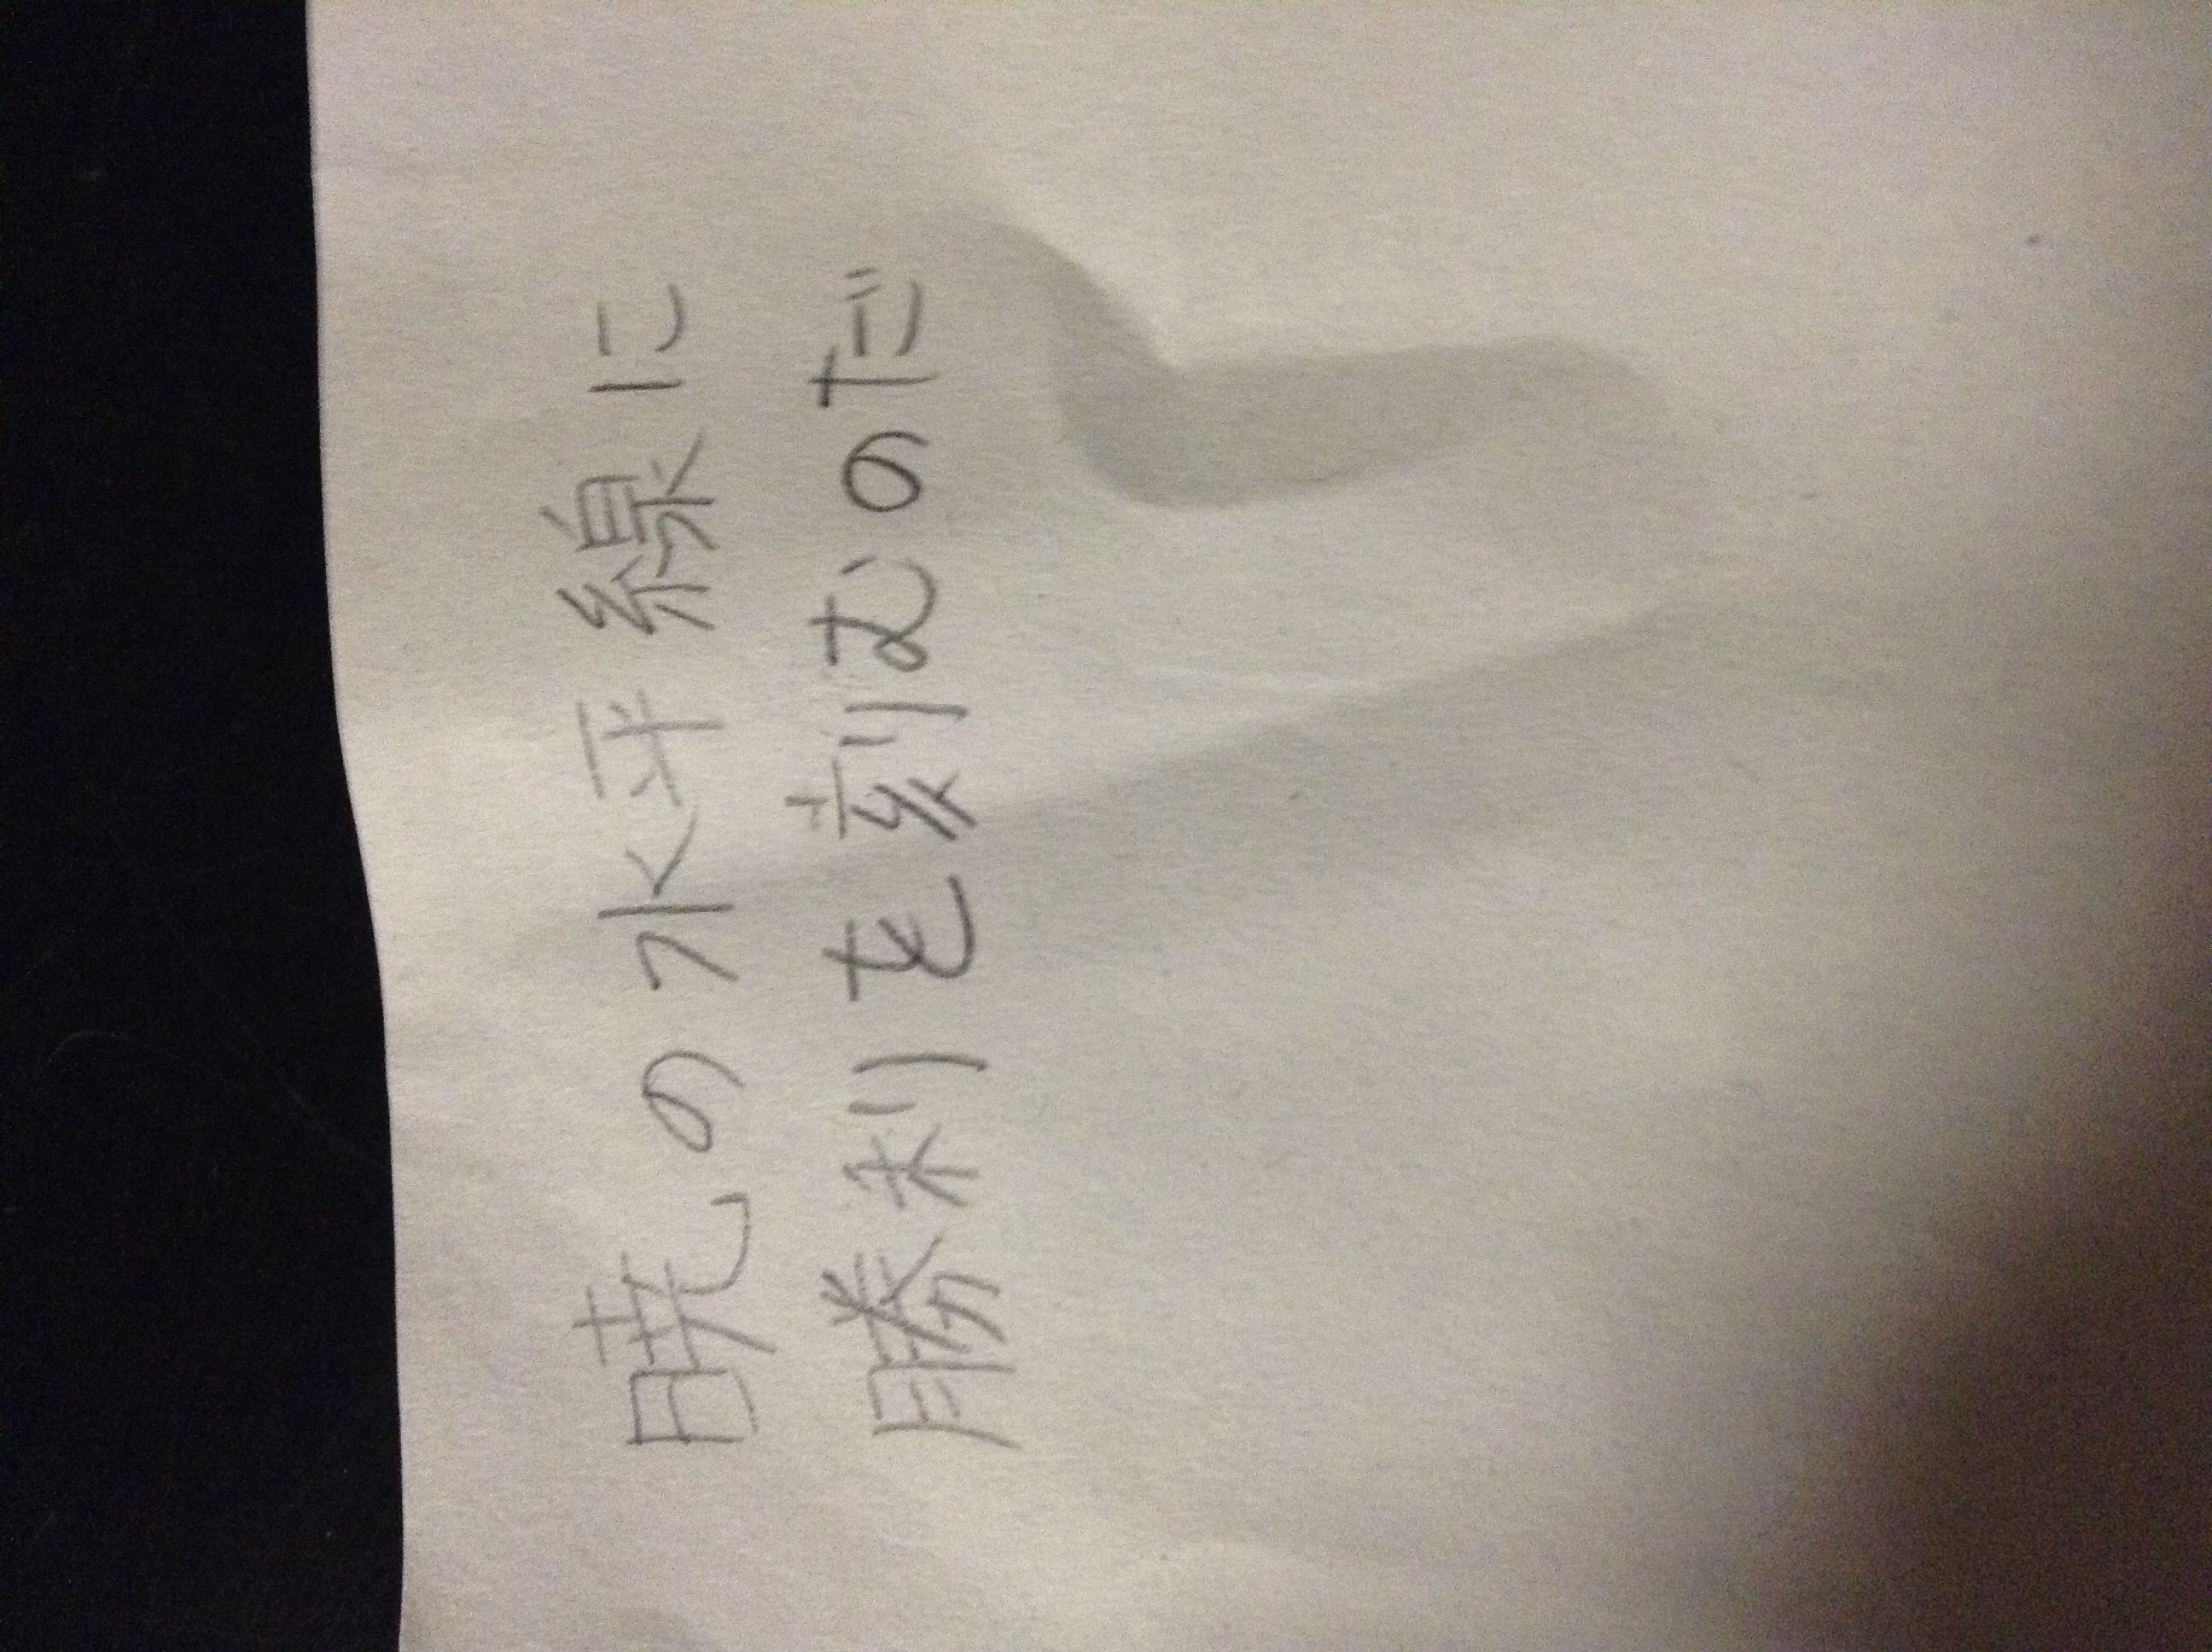 暁の水平線に
勝利を刻むのだ